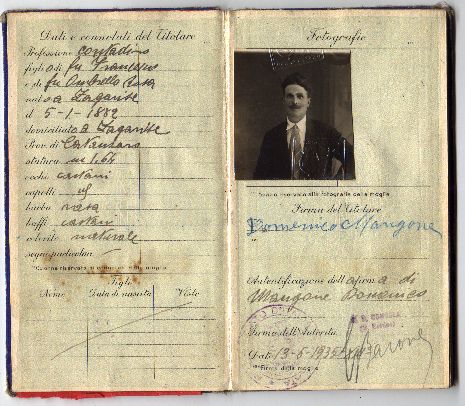 Dati e connotati del Titolare
Professione contadino
figlio di fu Francesco
e di fu Ombrello Rosa
nato a Zagarise
il 5-1-1882
domiciliato a Zagarise
Prov. di Catanzaro
statura m 1,64
occhi castani
capelli id
barba rasa
baffi castani
colorito naturale
segni particolari
Figli
Nome Data di nascita Visto
Fotografie
Spazio riservato alla fotografia della moglie
Firma del Titolare
Domenico Mangone
Autentificazione della firma di
Mangone Domenico
Firma dell'Autorità
Data 13-6-1935
Barone
Firma della moglie